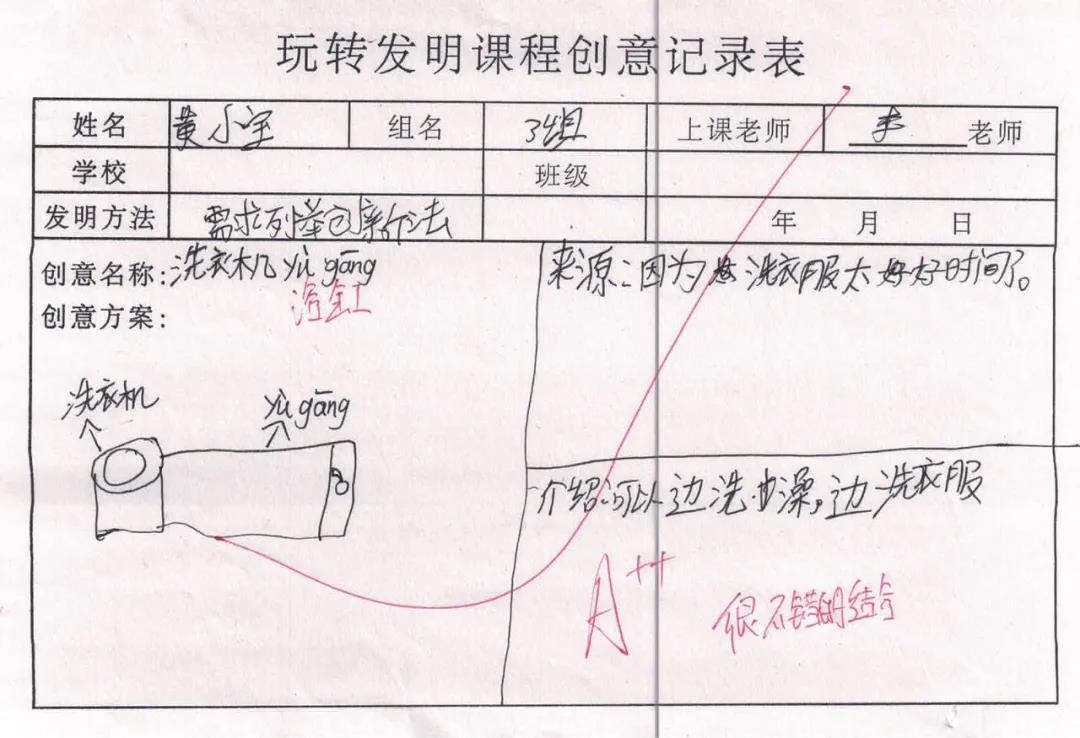 玩转发明课程创意记录表
姓名 黄小宝 组名 3组 上课老师 李 老师
学校 班级
发明方法 需求列举创新作法 年 月 日
创意名称:洗衣机yù gāng
浴缸
创意方案:
洗衣机
yù gāng
来源:因为 洗衣服太 好时间了。
介绍:可以边洗 澡,边洗衣服
A++
很不错的结合